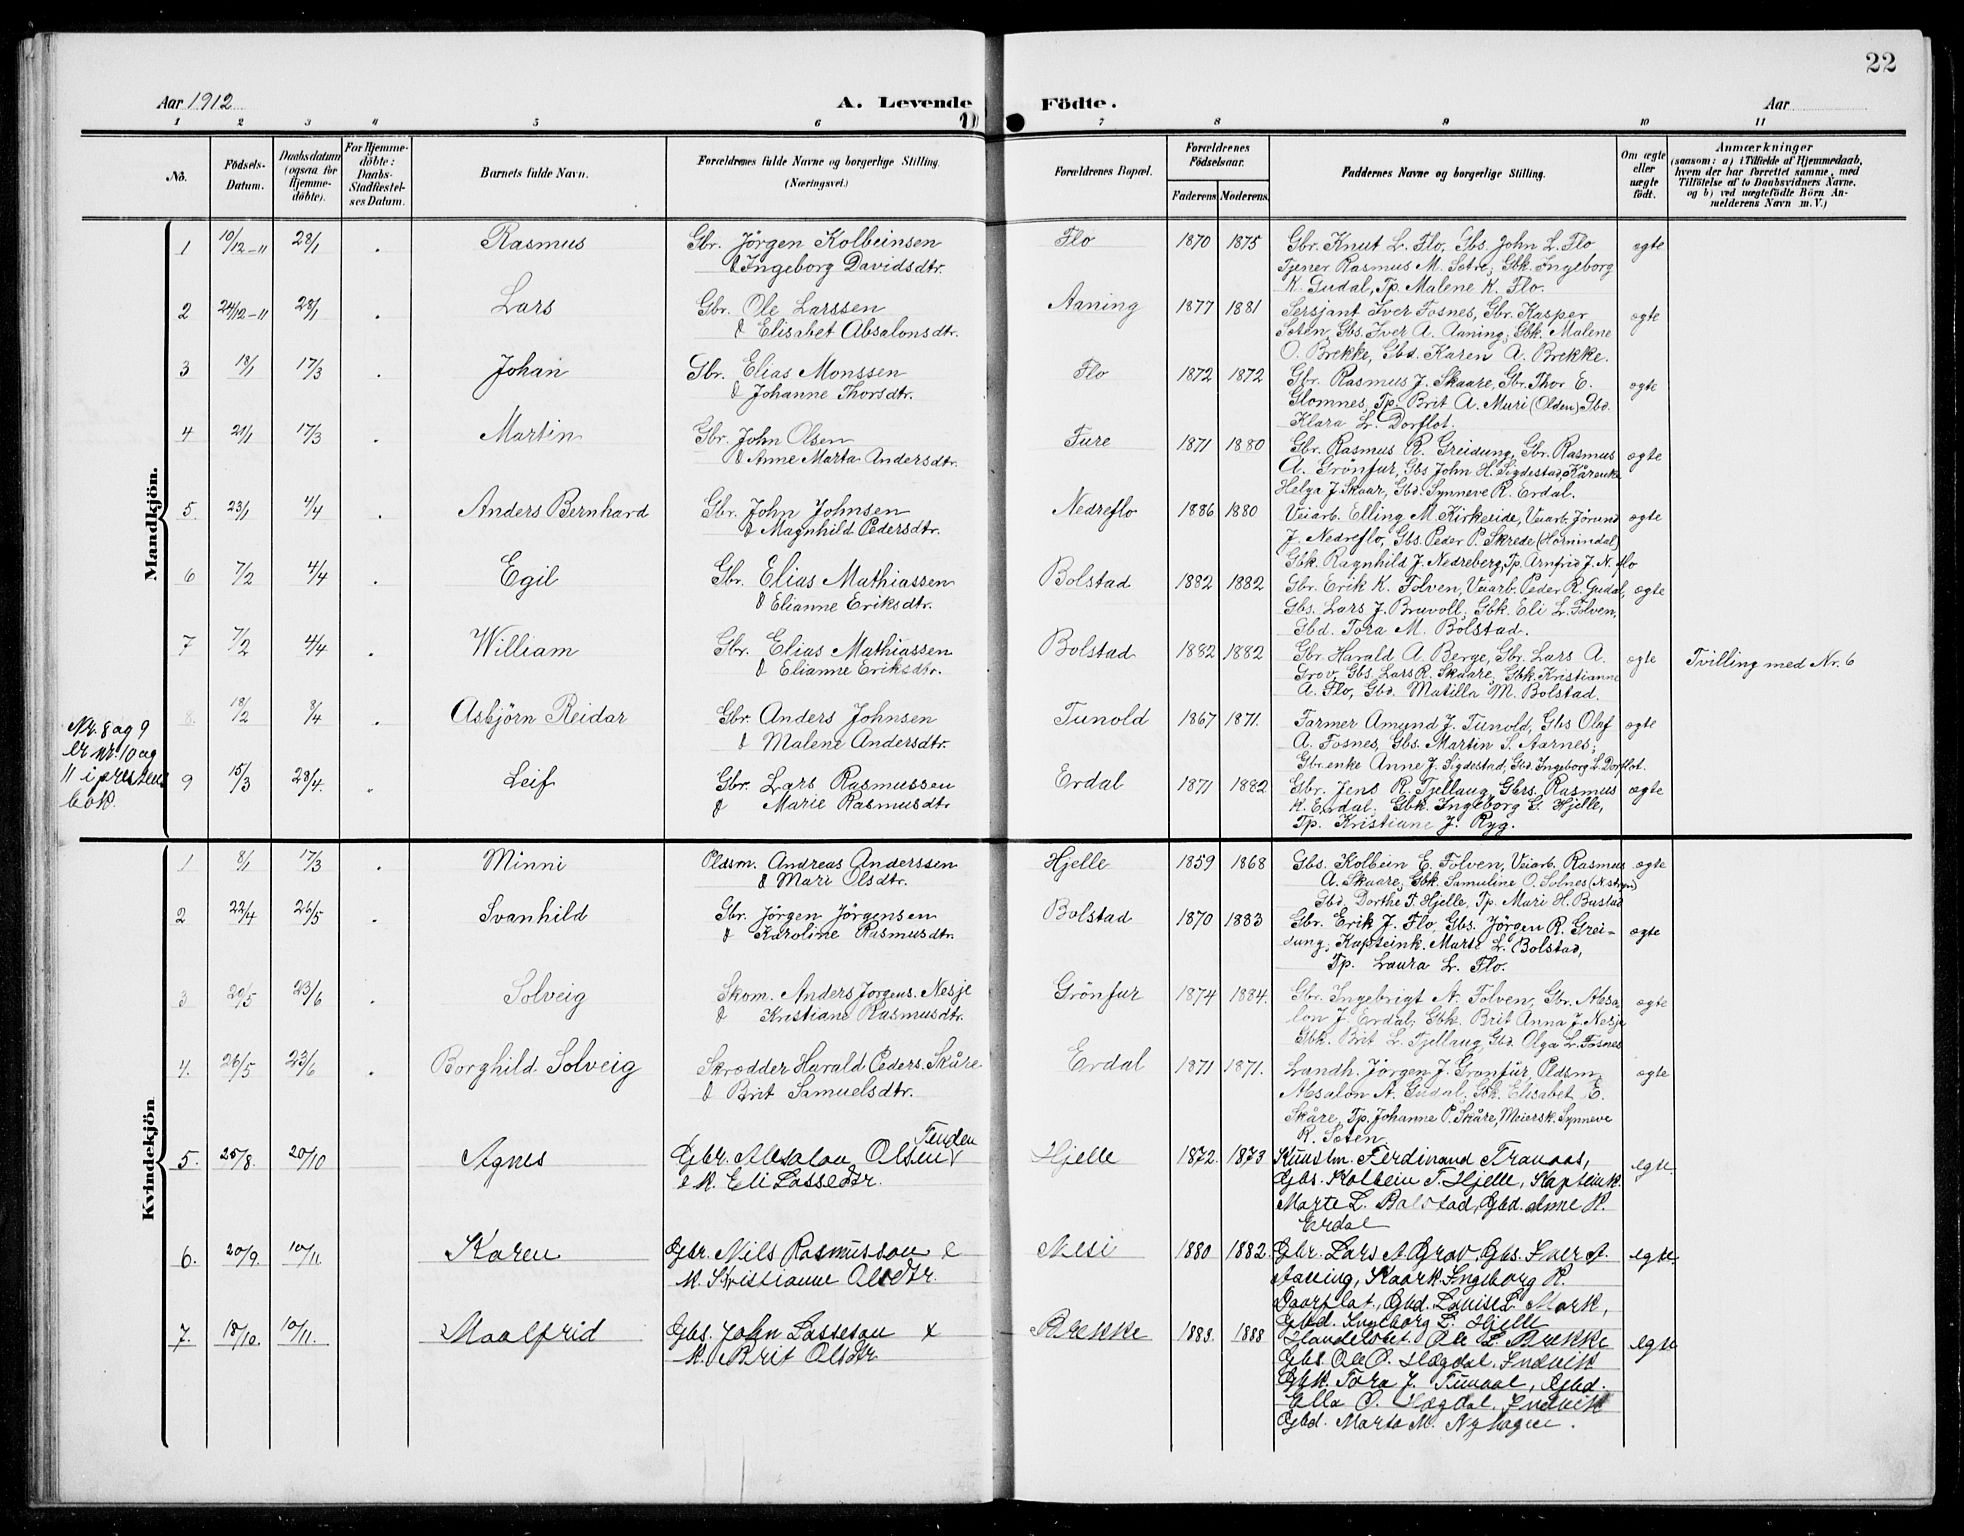 22
Aar 1912 A. Levende Födte. Aar
1 2 3 4 5 6 7 8 9 10 11
No. Födsels-Datum. Daabsdatum (ogsaa for Hjemmedöbte). For Hjemmedöbte: Daabs-Stadfæstelses Datum. Barnets fulde Navn. Forældrenes fulde Navne og borgerlige Stilling. (Næringsvei.) Forældrenes Bopæl. Forældrenes Födselsaar. Faderens. Moderens. Faddernes Navne og borgerlige Stilling. Om ægte eller uægte födt. Anmærkninger (saasom: a) i Tilfælde af Hjemmedaab, hvem der har forrettet samme, med Tilföielse af to Daabsvidners Navne, og b) ved uægtefödte Börn Anmelderens Navn m. V.)
Mandkjön.
1 10/12-11 28/1 Rasmus Gbr. Jörgen Kolbeinsen Flo 1870 1875 Gbr. Knut L. Flo, Gbs. John L. Flo ægte
& Ingeborg Davidsdtr. Tjener Rasmus M. Sotre, Gbk. Ingeborg
K. Gudal, Tp. Malene K. Flo.
2 24/12-11 28/1 Lars Gbr. Ole Larssen Aaning 1877 1881 Sersjant Iver Fosnes, Gbr. Kasper ægte
& Elisabet Absalonsdtr. Soten, Gbs. Iver A. Aaning, Gbk. Malene
O. Brekke, Gbd. Karen A. Brekke.
3 18/1 17/3 Johan Gbr. Elias Monssen Flo 1872 1872 Gbr. Rasmus J. Skaare, Gbr. Thor E. ægte
& Johanne Thorsdtr. Glomnes, Tp. Brit A. Muri (Olden) Gbd.
Klara L. Dorflot.
4 21/1 17/3 Martin Gbr. John Olsen Fure 1871 1880 Gbr. Rasmus R. Greidung, Gbr. Rasmus ægte
& Anne Marta Andersdtr. A. Grönfur, Gbs John H. Sigdestad,
Helga J. Skaar, Gbd. Synneve R. Erdal.
5. 23/1 4/4 Anders Bernhard Gbr. John Johnsen Nedreflo 1886 1880 Veiarb. Elling M. Kirkeide, Veiarb. Jörund ægte
& Magnhild Pedersdtr. J. Nedreflo, Gbs. Peder P. Skrede (Hornindal)
Gbk. Ragnhild J. Nedreberg, Tp. Arnfrid J. N. flo
6 7/2 4/4 Egil Gbr. Elias Mathiassen Bolstad 1882 1882 Gbr. Erik K. Folven, Veiarb. Peder R. Gudal, ægte
& Elianne Eriksdtr. Gbs. Lars J. Bruvoll, Gbk. Eli L. Folven,
Gbd. Tora M. Bolstad.
7 7/2 4/4 William Gbr. Elias Mathiassen Bolstad 1882 1882 Gbr. Harald A. Berge, Gbr. Lars A. ægte Tvilling med Nr. 6
& Elianne Eriksdtr. Grov, Gbs. Lars R. Skaare, Gbk. Kristianne
A. Flo, Gbd. Matilla M. Bolstad.
8. 18/2 8/4 Asbjörn Reidar Gbr. Anders Johnsen Tunold 1867 1871. Farmer Amund J. Tunold, Gbs Olaf ægte
& Malene Andersdtr. A. Fosnes, Gbs. Martin S. Aarnes;
Gbr.enke Anne J. Sigdestad, Gbd. Ingeborg L. Dorflot.
Nr. 8 og 9
er nr. 10 og
11 i prestens
bok.
9 15/3 28/4. Leif Gbr. Lars Rasmussen Erdal 1871 1882 Gbr. Jens R. Tjellaug, Gbrs. Rasmus ægte
& Marie Rasmusdtr K. Erdal. Gbk. Ingeborg G. Hjelle,
Tp. Kristiane J. Ryg.
Kvindekjön
1 8/1 17/3 Minni Pldsm. Andreas Anderssen Hjelle 1859 1868 Gbs. Kolbein E. Folven, Veiarb. Rasmus ægte
& Mari Olsdtr. A. Skaare, Gbk. Samuline O. Solnes (N.stryn)
Gbd. Dorthe T. Hjelle, Tp. Mari H. Bustad
2 22/4 26/5 Svanhild Gbr. Jörgen Jörgensen Bolstad 1870 1883 Gbr. Erik J. Flo, Gbs. Jörgen R. Grei- ægte
& Karoline Rasmusdtr. dung, Kapteink. Marte L. Bolstad,
Tp. Laura L. Flo.
3 20/5 23/6 Solveig Skom. Anders Jörgens. Nesje Grönfur 1874 1884. Gbr. Ingebrigt A. Folven, Gbr. Absa- ægte
& Kristiane Rasmusdtr. lon J. Erdal, Gbk. Brit Anna J. Nesje
Gbk. Brit L. Tjellaug, Gbd. Olga L. Fosnes
4. 26/5 23/6 Borghild Solveig Skrædder Harald Peders. Skåre Erdal 1871 1871. Landh. Jörgen J. Grönfur, Pldsm. ægte
& Brit Samuelsdtr. Absalon A. Gudal, Gbk. Elisabet E.
Skåre, Tp. Johanne P. Skåre, Meiersk. Synneve
R. Soten.
5. 25/8. 20/10 Agnes Gbr. Absalon Olsen Tenden Hjelle 1872. 1873 Kunstm. Ferdinand Tranaas, egte.
& k. Eli Lassedtr. Gbs. Kolbein T. Hjelle, Kapteink.
Marte L. Bolstad, Gbd. Anne K.
Erdal
6. 20/9. 10/11. Karen Gbr. Nils Rasmusson & Nesi 1880 1882. Gbr. Lars A. Grov, Gbs. Iver A. egte.
k. Kristianne Olsdtr. Aaning, Kaark. Ingeborg K.
Daarflot, Gbd. Lovise L. Mork,
Gbd. Ingeborg L. Hjelle
7. 18/10. 10/11. Maalfrid Gbs. John Lasseson & Brekke 1883. 1888 Handelsbet. Ole L. Brekke egte
k. Brit Olsdtr Gbs. Ole O. Hægdal, Indvik
Gbk. Tora J. Tunaal, Gbd.
Ella O. Hægdal, Indvik
Gbd. Marta M. Nyhagen.